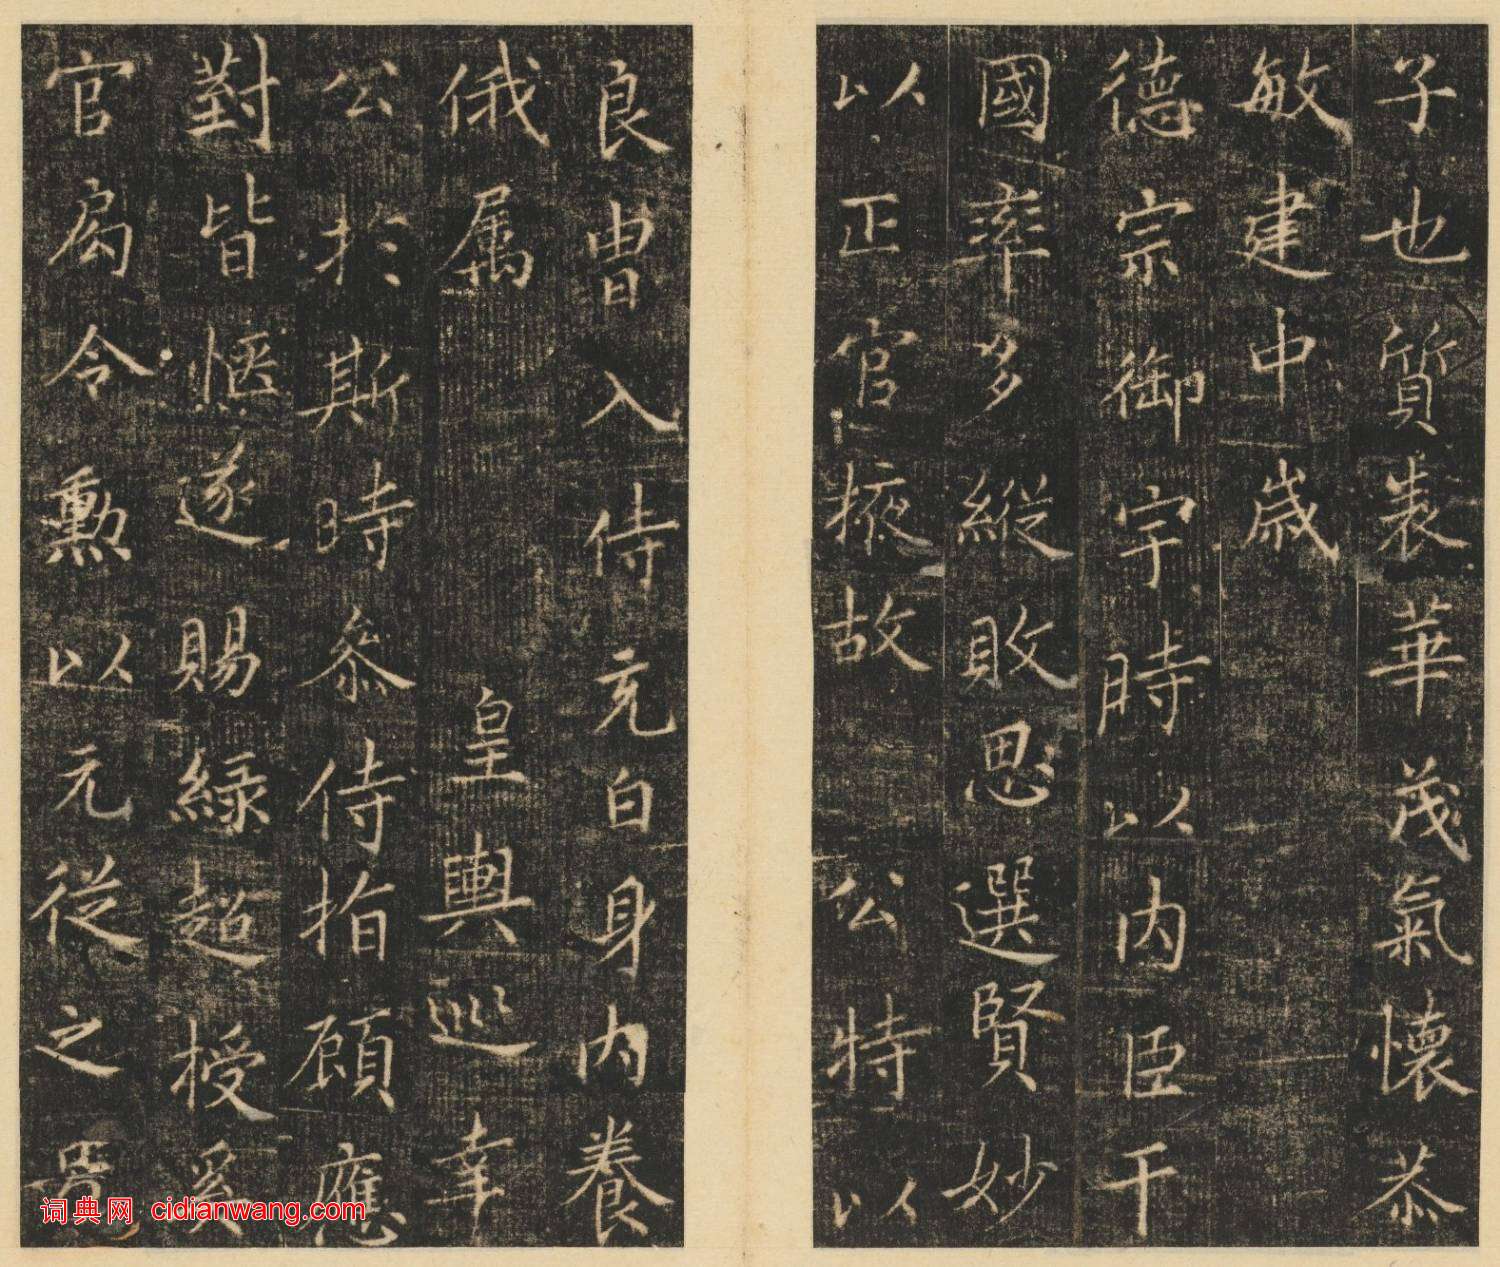 子也質表華茂氣懷恭
敏建中歲
德宗御宇時以內臣干
國率多縱敗思選賢妙
以正官掖故以公特以
良胄入侍充白身內養
俄属皇輿巡幸
公於斯時叅侍指顧應
對皆愜遂賜綠超授奚
官局令勳以元從之号
词典网 cidianwang.com